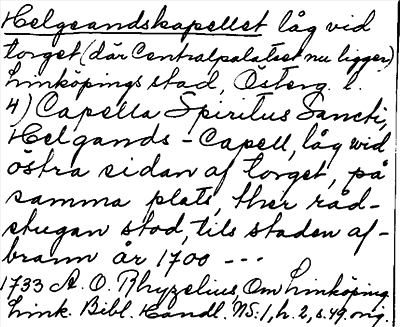 Helgeandskapellet låg vid
torget (där Centralpalatset nu ligger)
Linköpings stad, Österg. l.
4) Capella Spiritus Sancti,
Helgands-Capell, låg wid
östra sidan af torget, på
samma plats, ther råd-
stugan stod, tils staden af-
brann år 1700 ---
1733 A. O. Rhyzelius, Om Linköping.
Link. Bibl. Handl. NS. 1, h. 2, s. 49. orig.